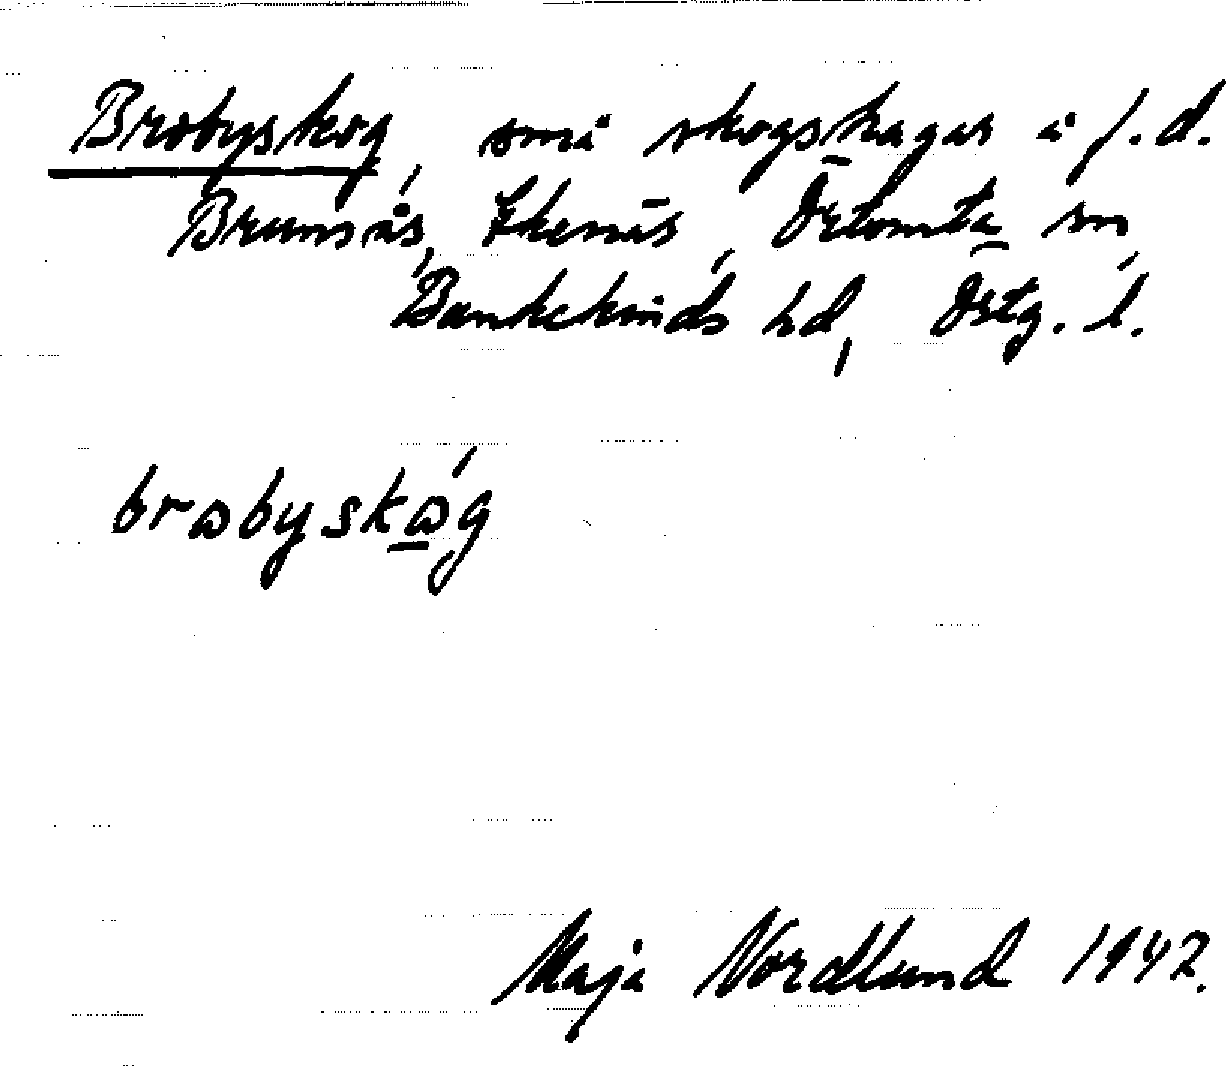 Brobyskog, små skogshagar å f.d.
Brunsås, Ekenäs, Örtomta sn
Bankekinds hd, Östg. l.
brobyskog
Maja Nordlund 1942.